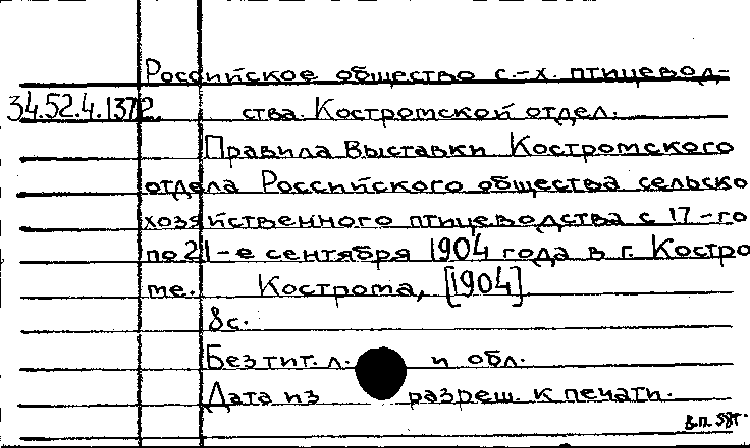 Российское общество с.-х. птицевод-
34.52.4.1372. ства. Костромской отдел.
Правила Выставки Костромского
отдела Российского общества сельско
хозяйственного птицеводства с 17-го
по 21-е сентября 1904 года в г. Костро
ме. Кострома, [1904].
8с.
Без тит. л. и обл.
Дата из разреш. к печати.
в.п. 58г